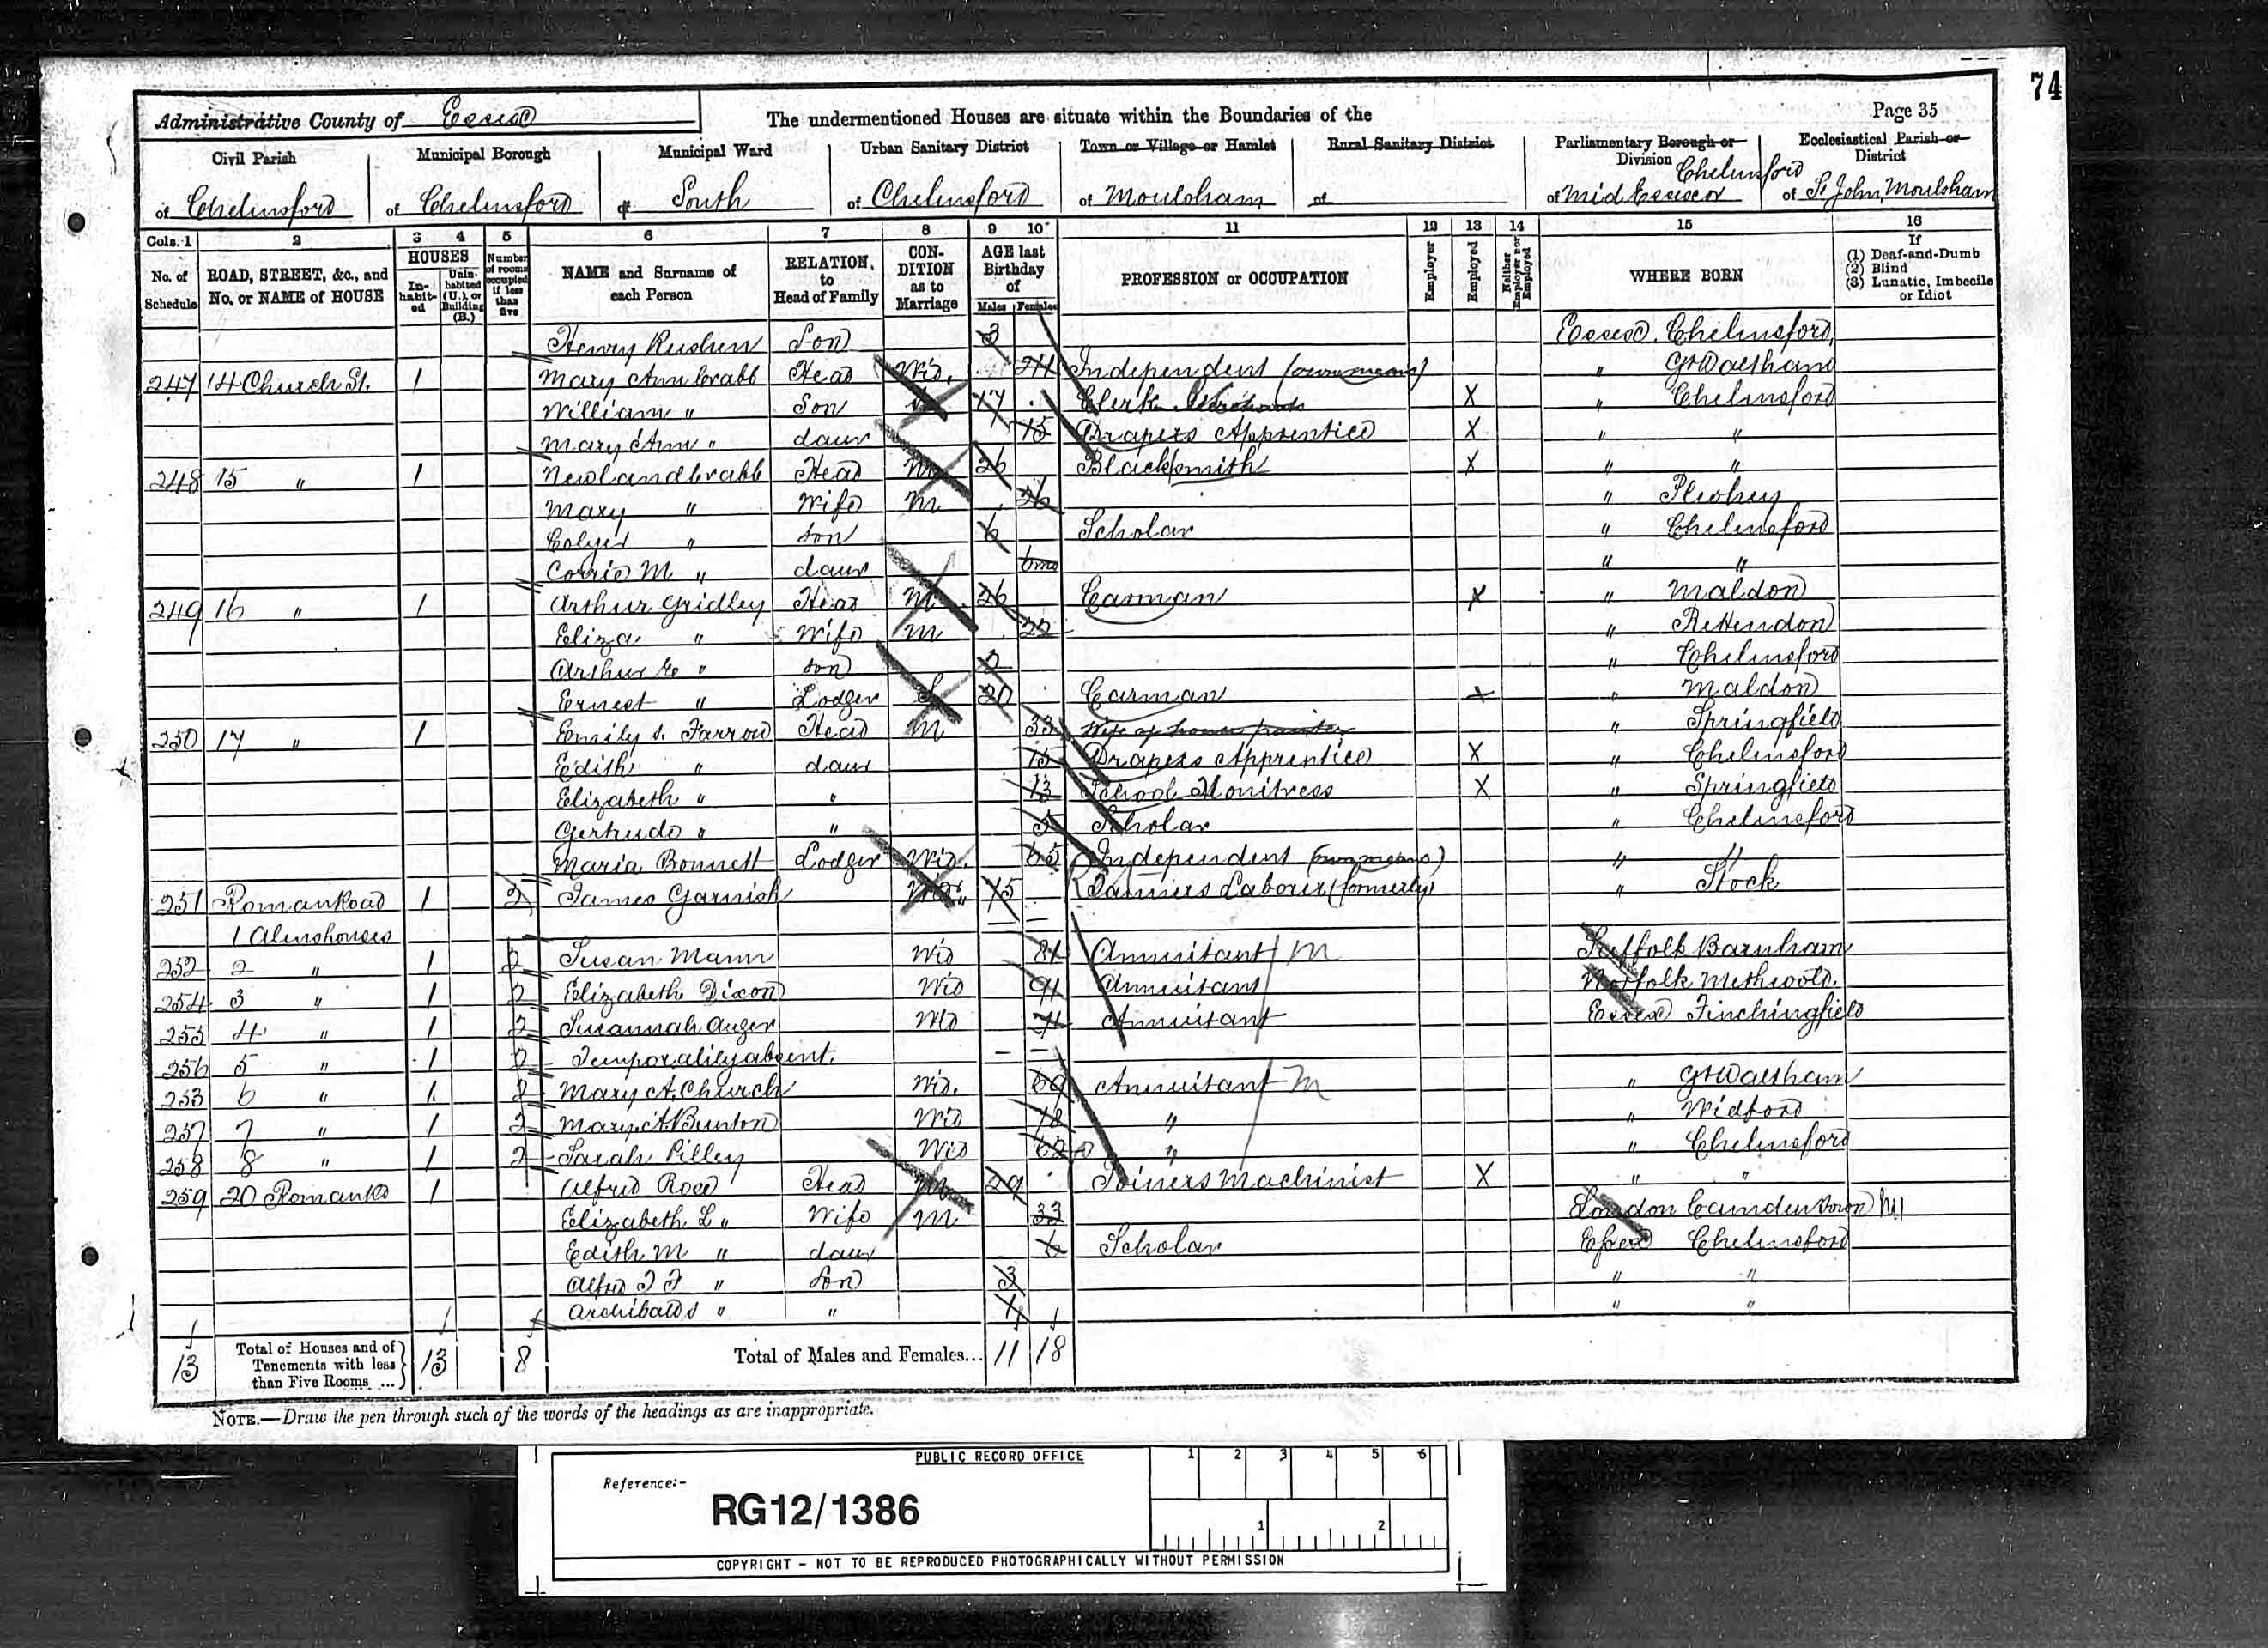 74
Administrative County of Essex
The undermentioned Houses are situate within the Boundaries of the
Page 35
Civil Parish
of Chelmsford
Municipal Borough
of Chelmsford
Municipal Ward
of South
Urban Sanitary District
of Chelmsford
Town or Village or Hamlet
of Moulsham
Rural Sanitary District
of
Parliamentary Borough or
Division Chelmsford
of Mid Essex or
Ecclesiastical Parish or
District
of St John, Moulsham
Cols. 1 2 3 4 5 6 7 8 9 10 11 12 13 14 15 16
No. of Schedule
ROAD, STREET, &c., and No. or NAME of HOUSE
HOUSES
In-habit-ed
Unin-habited (U.), or Building (B.)
Number of rooms occupied if less than five
NAME and Surname of each Person
RELATION to Head of Family
CON-DITION as to Marriage
AGE last Birthday of
Males Females
PROFESSION or OCCUPATION
Employer
Employed
Neither Employer nor Employed
WHERE BORN
If
(1) Deaf-and-Dumb
(2) Blind
(3) Lunatic, Imbecile or Idiot
Henry Rushen Son 3 Essex. Chelmsford
247 14 Church St. 1 Mary Ann Crabb Head Wid. Independent (own means) " Gt Waltham
William " Son 17 Clerk X " Chelmsford
Mary Ann " daur 15 Drapers Apprentice X " "
248 15 " 1 Newland Crabb Head M 26 Blacksmith X " "
Mary " Wife M 26 " Pleshey
" son 6 Scholar " Chelmsford
M " daur 6mo " "
249 16 " 1 Arthur Gridley Head M 26 Carman X " Maldon
Eliza " Wife M 22 " Rettendon
Arthur E " son 2 " Chelmsford
Ernest " Lodger S 20 Carman X " Maldon
250 17 " 1 Emily S. Farrow Head M 33 Wife of house painter " Springfield
Edith " daur 15 Drapers Apprentice X " Chelmsford
Elizabeth " " 13 School Monitress X " Springfield
Gertrude " " 5 Scholar " Chelmsford
Maria Bonnett Lodger Wid. 65 Independent (own means) " "
251 Roman Road 1 2 James Garnish 75 Labourer (formerly) " Stock
1 Almshouses
252 2 " 1 2 Susan Mann Wid 81 Annuitant M Suffolk Barnham
254 3 " 1 2 Elizabeth Dixon Wid 91 Annuitant Norfolk Methwold.
255 4 " 1 2 Susannah Auger Wid 71 Annuitant Essex Finchingfield
256 5 " 1 2 Temporalily absent. – –
253 6 " 1 2 Mary A. Church Wid. 69 Annuitant M " Gt Waltham
257 7 " 1 2 Mary A. Burton Wid 78 " " Widford
258 8 " 1 2 Sarah Pilley Wid 62 " " Chelmsford
259 20 Roman Rd 1 Alfred Head M 29 Joiners Machinist X " "
Elizabeth L " Wife M 33 London Camden Town
Edith M " daur 6 Scholar Essex Chelmsford
Alfred " Son 3 " "
Archibald S " " " "
13 Total of Houses and of Tenements with less than Five Rooms ... 13 8 Total of Males and Females... 11 18
NOTE.—Draw the pen through such of the words of the headings as are inappropriate.
PUBLIC RECORD OFFICE
Reference:-
RG12/1386
1 2 3 4 5 6
1 2
COPYRIGHT - NOT TO BE REPRODUCED PHOTOGRAPHICALLY WITHOUT PERMISSION